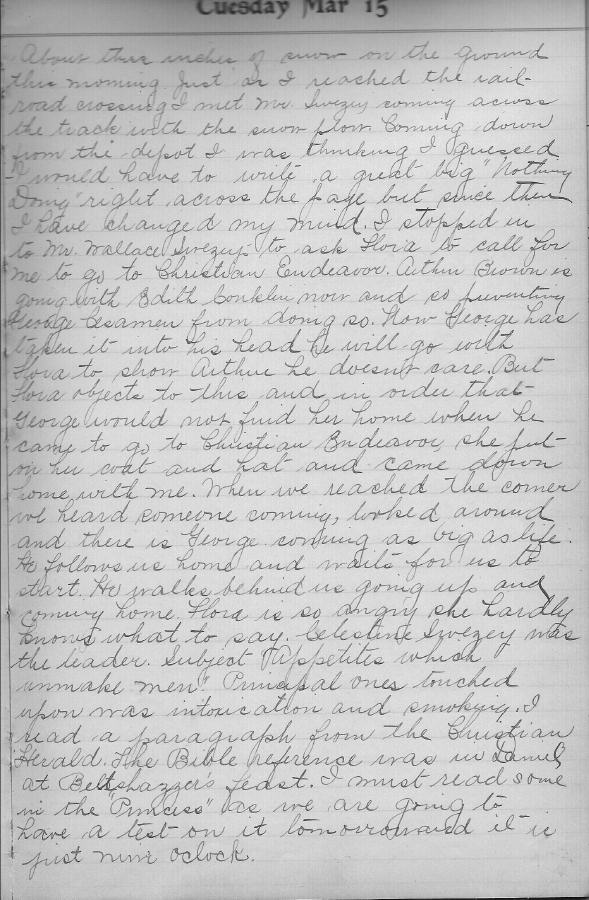 Tuesday Mar 15
About three inches of snow on the ground
this morning. Just as I reached the rail-
road crossing I met Mr. Swezey coming across
the track with the snow plow. Coming down
from the depot I was thinking I guessed
I would have to write a great big "Nothing
Doing" right across the page but since then
I have changed my mind. I stopped in
to Mr. Wallace Swezey's to ask Flora to call for
me to go to Christian Endeavor. Arthur Brown is
going with Edith Conklin now and so preventing
George from doing so. Now George has
taken it into his head he will go with
Flora to show Arthur he doesn't care. But
Flora objects to this and in order that
George would not find her home when he
came to go to Christian Endeavor she put
on her coat and hat and came down
home with me. When we reached the corner
we heard someone coming, looked around
and there is George coming as big as life.
He follows us home and waits for us to
start. He walks behind us going up and
coming home. Flora is so angry she hardly
knows what to say. Celestine Swezey was
the leader. Subject "Appetites which
unmake men". Principal ones touched
upon was intoxication and smoking. I
read a paragraph from the Christian
Herald. The Bible reference was in Daniel
at Beltshazzer's feast. I must read some
in the "Princess" as we are going to
have a test on it tomorrow and it is
just nine oclock.